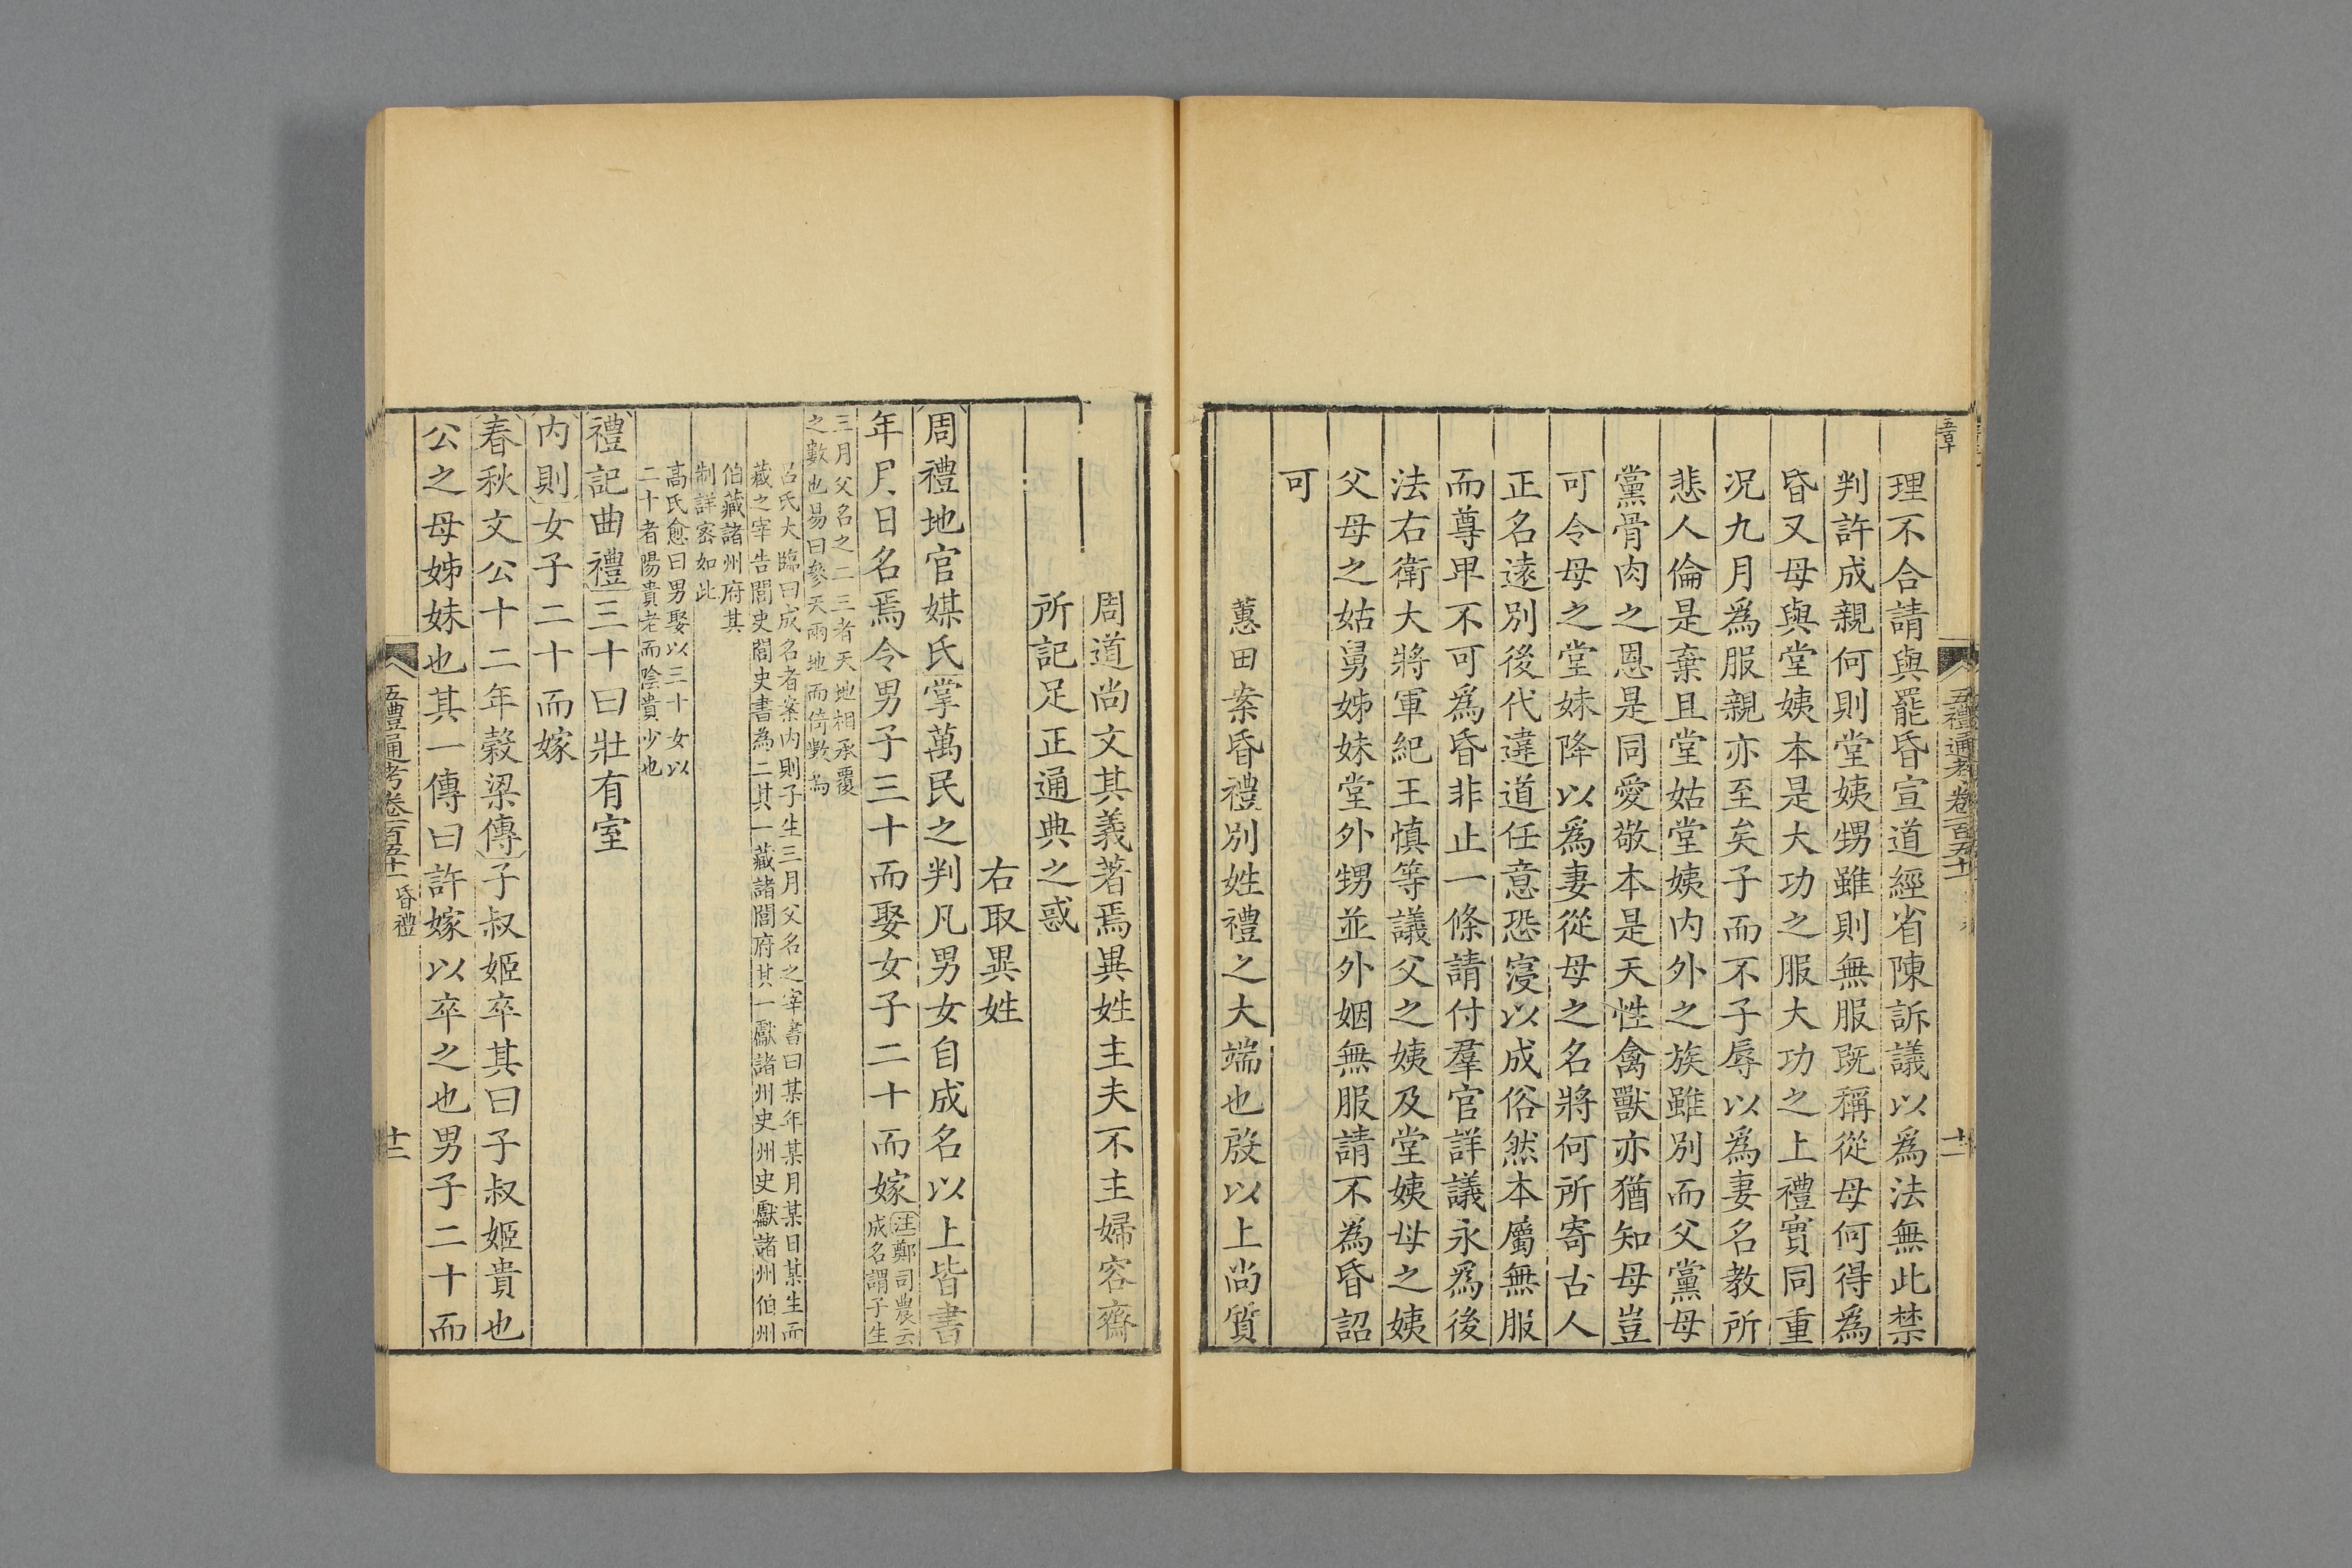 理不合請與罷昏宣道經省陳訴議以爲法無此禁
判許成親何則堂姨甥雖則無服既稱從母何得爲
昏又母與堂姨本是大功之服大功之上禮實同重
況九月爲服親亦至矣子而不子辱以爲妻名教所
悲人倫是棄且堂姑堂姨内外之族雖別而父黨母
黨骨肉之恩是同愛敬本是天性禽獸亦猶知母豈
可令母之堂妹降以爲妻從母之名將何所寄古人
正名遠別後代違道任意恐寖以成俗然本屬無服
而尊卑不可爲昏非止一條請付羣官詳議永爲後
法右衛大將軍紀王慎等議父之姨及堂姨母之姨
父母之姑舅姊妹堂外甥並外姻無服請不為昏詔
可
蕙田案昏禮別姓禮之大端也殷以上尚質
周道尚文其義著焉異姓主夫不主婦容齋
所記足正通典之惑
右取異姓
周禮地官媒氏掌萬民之判凡男女自成名以上皆書
年月日名焉令男子三十而娶女子二十而嫁注鄭司農云
成名謂子生
三月父名之二三者天地相承覆
之數也易曰參天兩地而倚數焉
呂氏大臨曰成名者案内則子生三月父名之宰書曰某年某月某日某生而
藏之宰告閭史閭史書為二其一藏諸閭府其一獻諸州史州史獻諸州伯州
伯藏諸州府其
制詳密如此
高氏愈曰男娶以三十女以
二十者陽貴老而陰貴少也
禮記曲禮三十曰壯有室
内則女子二十而嫁
春秋文公十二年穀梁傳子叔姬卒其曰子叔姬貴也
公之母姊妹也其一傳曰許嫁以卒之也男子二十而
五禮通考卷一百五十一
昏禮
十二
五禮通考卷一百五十一
十一